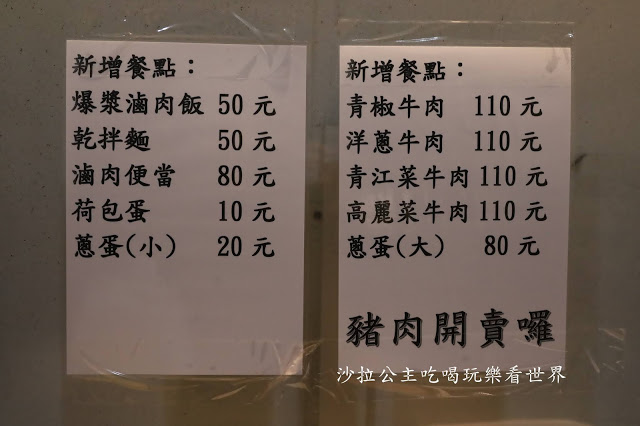 新增餐點：
爆漿滷肉飯 50 元
乾拌麵 50 元
滷肉便當 80 元
荷包蛋 10 元
蔥蛋(小) 20 元
新增餐點：
青椒牛肉 110 元
洋蔥牛肉 110 元
青江菜牛肉 110 元
高麗菜牛肉 110 元
蔥蛋(大) 80 元
豬肉開賣囉
沙拉公主吃喝玩樂看世界